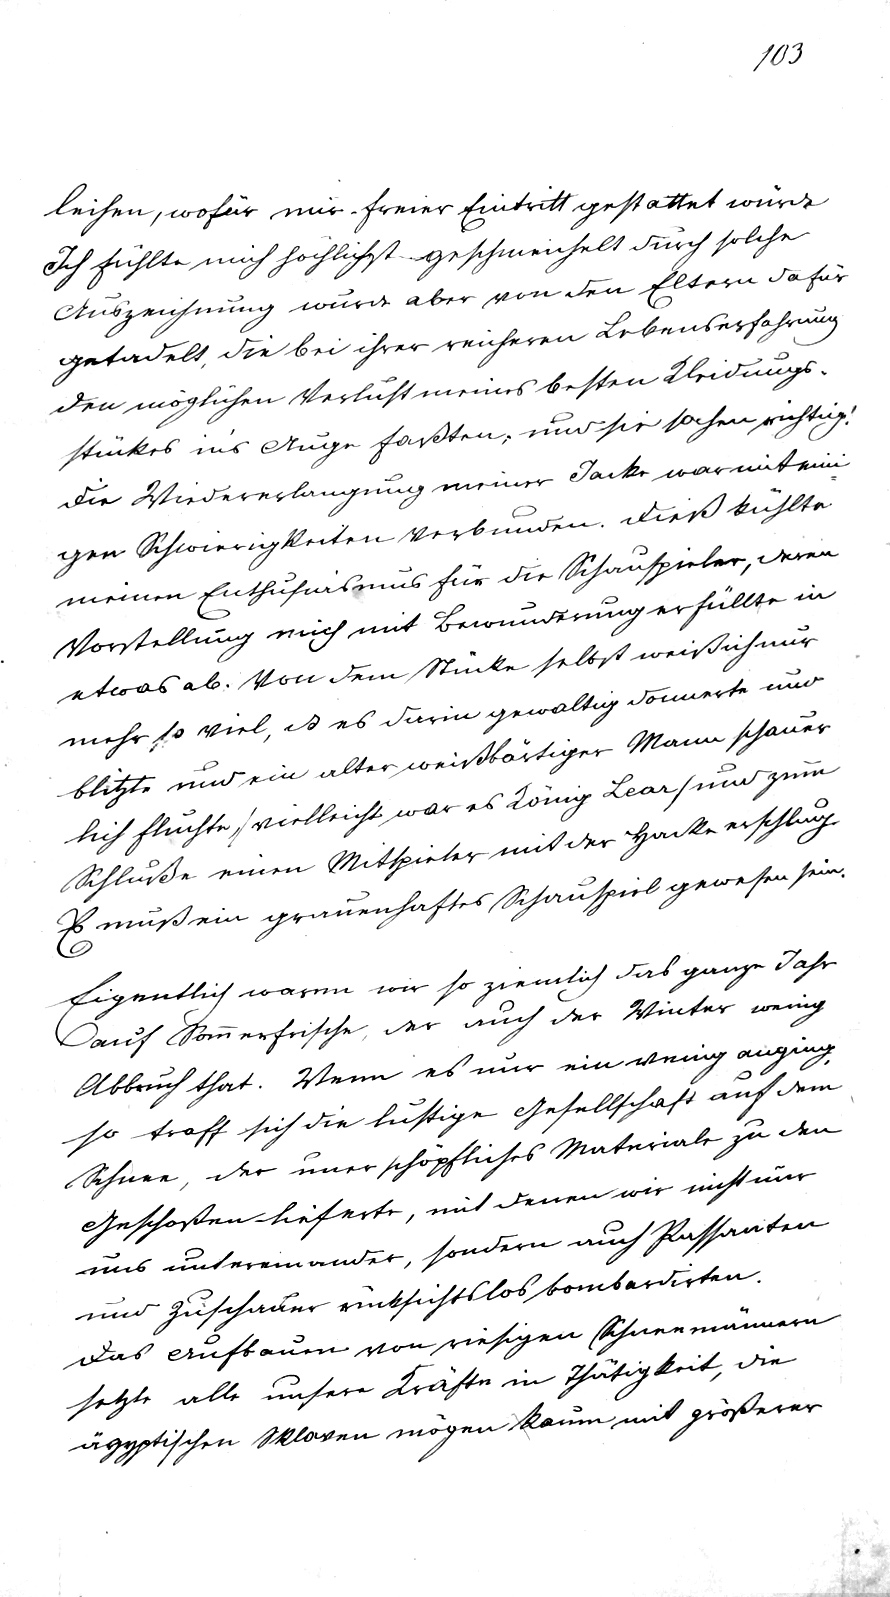 103
leihen, wofür mir freier Eintritt gestattet würde
Ich fühlte mich höchlichst geschmeichelt durch solche
Auszeichnung wurde aber von den Eltern dafür
getadelt, die bei ihrer reicheren Lebenserfahrung
den möglichen Verlust meines besten Kleidungs-
stückes in's Auge faßten; und sie sahen richtig!
die Wiedererlangung meiner Jacke war mit eini
gen Schwierigkeiten verbunden. Dieß kühlte
meinen Enthusiasmus für die Schauspieler, deren
Vorstellung mich mit Bewunderung erfüllte in
etwas ab. Von dem Stücke selbst weiß ich nur
mehr so viel, daß es darin gewaltig donnerte und
blitzte und ein alter weißbärtiger Mann schauer
lich fluchte, /vielleicht war es König Lear/ und zum
Schluße einen Mitspieler mit der Hacke erschlug.
Es muß ein grauenhaftes Schauspiel gewesen sein.
Eigentlich waren wir so ziemlich das ganze Jahr
auf Som̅erfrische, der auch der Winter wenig
Abbruch that. Wenn es nur ein wenig anging,
so traff sich die lustige Gesellschaft auf dem
Schnee, der unerschöpfliches Materiale zu den
Geschoßen lieferte, mit denen wir nicht nur
uns untereinander, sondern auch Passanten
und Zuschauer rücksichtslos bombardirten.
Das Aufbauen von riesigen Schneemännern
setzte alle unsere Kräfte in Thätigkeit, die
ägyptischen Sklaven mögen kaum mit größerer